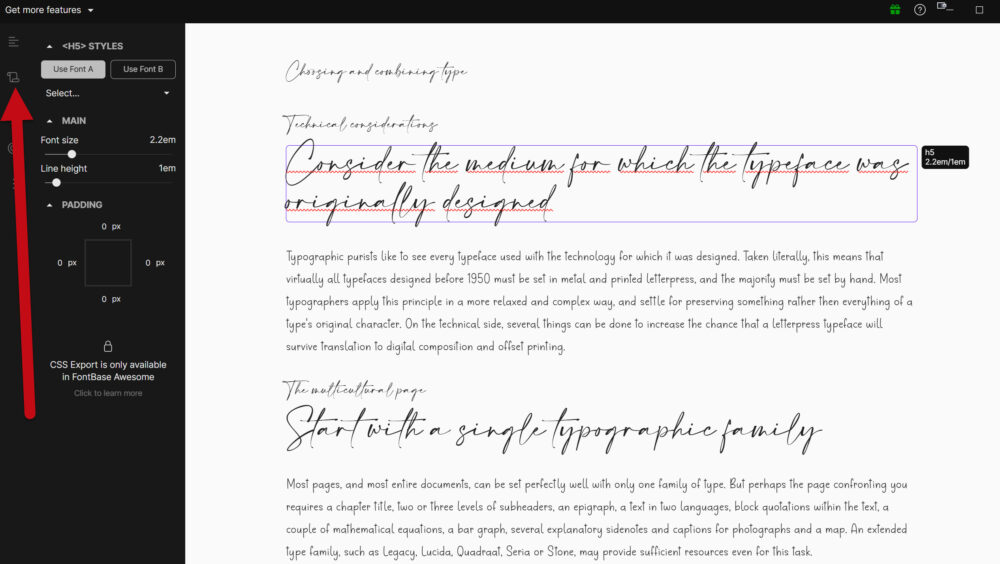 Get more features
<H5> STYLES
Use Font A
Use Font B
Select...
MAIN
Font size 2.2em
Line height 1em
PADDING
0 px
0 px 0 px
0 px
CSS Export is only available
in FontBase Awesome
Click to learn more
Choosing and combining type
Technical considerations
Consider the medium for which the typeface was
originally designed
h5
2.2em/1em
Typographic purists like to see every typeface used with the technology for which it was designed. Taken literally, this means that
virtually all typefaces designed before 1950 must be set in metal and printed letterpress, and the majority must be set by hand. Most
typographers apply this principle in a more relaxed and complex way, and settle for preserving something rather then everything of a
type's original character. On the technical side, several things can be done to increase the chance that a letterpress typeface will
survive translation to digital composition and offset printing.
The multicultural page
Start with a single typographic family
Most pages, and most entire documents, can be set perfectly well with only one family of type. But perhaps the page confronting you
requires a chapter title, two or three levels of subheaders, an epigraph, a text in two languages, block quotations within the text, a
couple of mathematical equations, a bar graph, several explanatory sidenotes and captions for photographs and a map. An extended
type family, such as Legacy, Lucida, Quadraat, Seria or Stone, may provide sufficient resources even for this task.